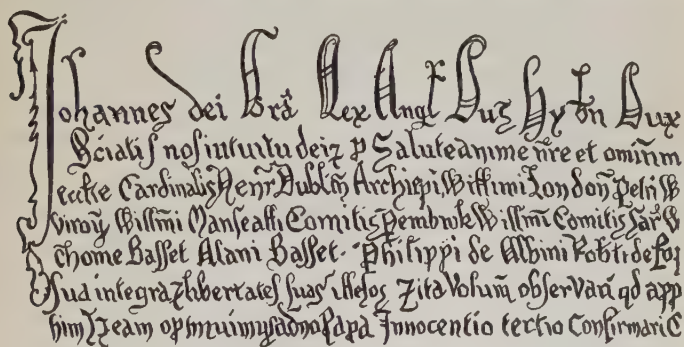 Johannes dei Grã Rex Angł Dns Hybn Dux
Sciatis nos intuitu dei z p Salute anime nře et omium
ecctie Cardinalis Henr̃ Dublin̄ Archiepi, Willimi London̄ Petri W
viroɀ Willm̄i Marescalli Comitis Pembrok Willm̄ Comitis Sar̃ W
Thome Basset Alani Basset. Philippi de Albini Robti de
sua integra z libertates suas illesas z ita volum̄ observari qd app
Innocentio tertio Confirmari